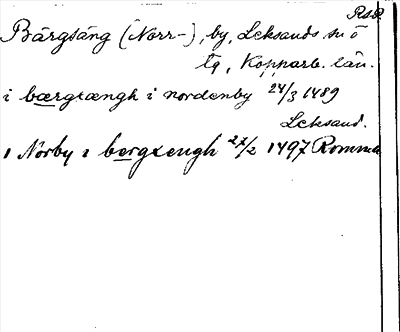 RsP.
Bärgsäng (Norr-), by, Leksands sn o
tg, Kopparb. län.
i bærgsængh i nordenby 24/3 1489
Leksand.
i Norby i bergsengh 27/2 1497 Romma